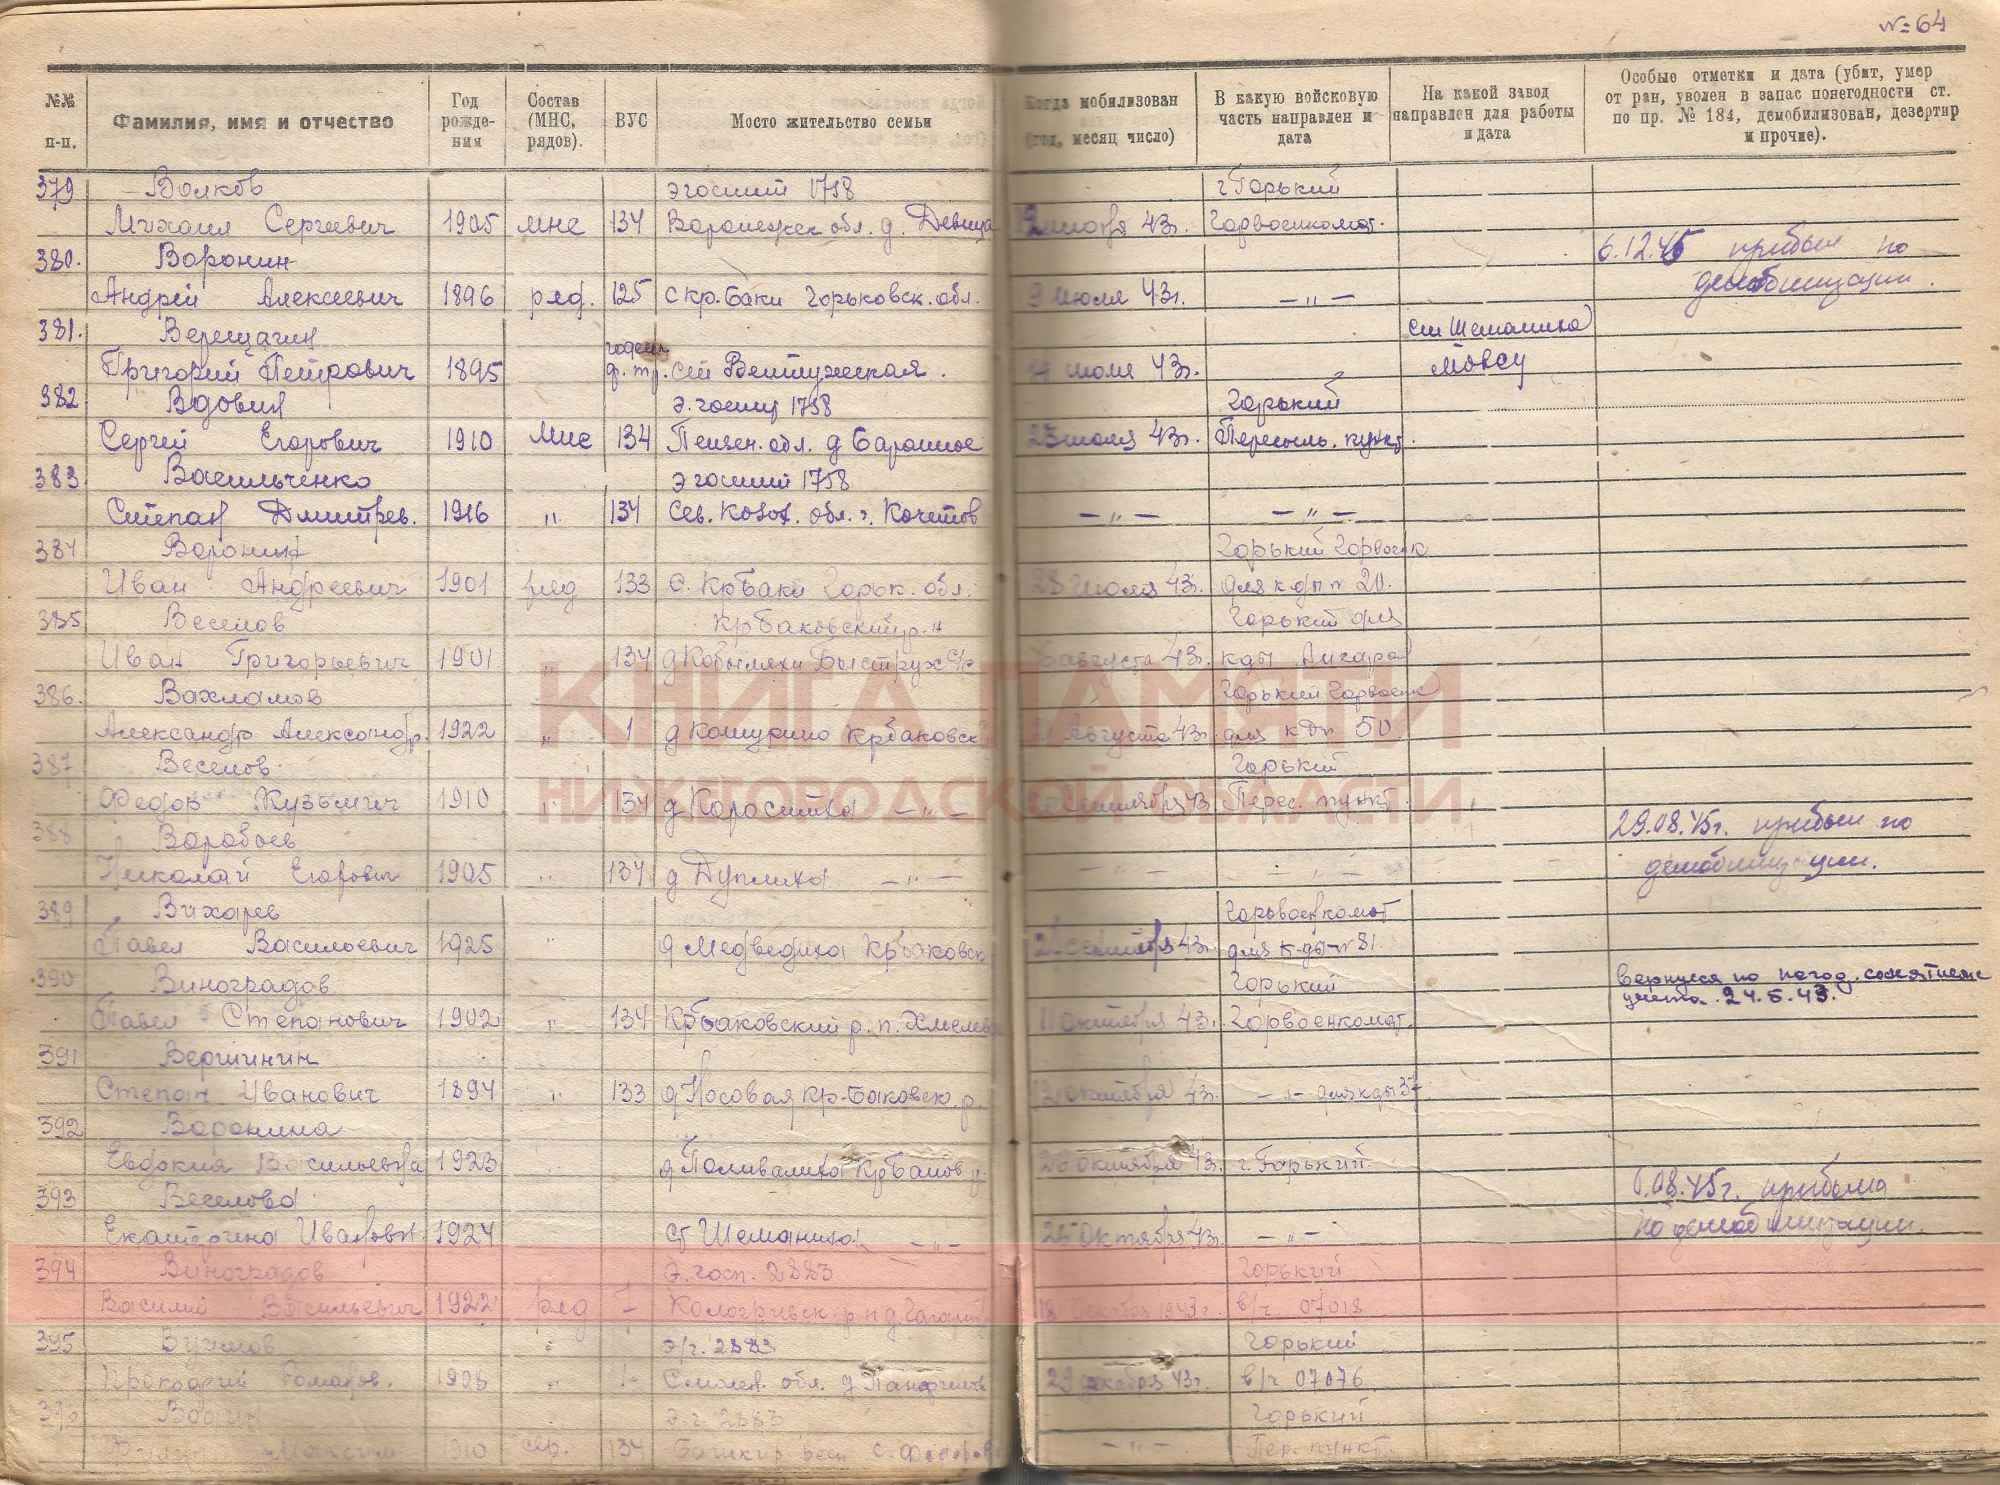 № 64
№№ п-п.
Фамилия, имя и отчество
Год рожде- ния
Состав (МНС, рядов).
ВУС
Место жительство семьи
Когда мобилизован (год, месяц число)
В какую войсковую часть направлен и дата
На какой завод направлен для работы и дата
Особые отметки и дата (убит, умер от ран, уволен в запас понегодности ст. по пр. № 184, демобилизован, дезертир и прочие).
379 Волков эгоспит 1758 г Горький
Михаил Сергеевич 1905 мнс 134 Воронежск обл. д. Девица 43г. Горвоенкомат.
380. Воронин 6.12.45 прибыл по
Андрей Алексеевич 1896 ряд. 125 с кр. Баки Горьковск. обл. 9 июля 43г. — „ — демобилизации.
381. Верещагин ст Шеманиха
Григорий Петрович 1895 годен ф. тр. ст Ветлужская. 14 июля 43г. Мопсу
382 Вдовин э. госпит 1758 Горький
Сергей Егорович 1910 Мнс 134 Пензен. обл. д 23 июля 43г. Пересыль. пункт.
383 Васильченко э госпит 1758
Степан Дмитрев. 1916 „ 134 Сев. обл. — „ — — „ —
384 Воронин Горький Горвоенк
Иван Андреевич 1901 ряд 133 с. КрБаки Горьк. обл. 28 июля 43г. для 20.
385 Веселов КрБаковский р-н Горький для
Иван Григорьевич 1901 „ 134 д С/с августа 43г.
386. Вахламов Горький Горвоенк
Александр Александр. 1922 „ 1 д КрБаковск Августа 43г. для 50
387 Веселов Горький
Федор Кузьмич 1910 „ 134 д — „ — сентября 43 Перес. пункт.
388 Воробьев 29.08.45г. прибыл по
Николай Егорович 1905 „ 134 д Дуплиха — „ — — „ — — „ — демобилизации.
389 Вихарев Горвоенкомат
Павел Васильевич 1925 „ д Медведиха КрБаковск сентября 43г. для № 81.
390 Виноградов Горький вернулся по
Павел Степанович 1902 „ 134 КрБаковский р. п. 11 октября 43г. Горвоенкомат. учета. 24.5.43.
391 Вершинин
Степан Иванович 1894 „ 133 д Носовая Кр-Баковск. р. октября 43г. — „ — для 37
392 Воронина
Евдокия Васильевна 1923 д Поливалиха 26 октября 43. г. Горький.
393 Веселова 08.45г. прибыла
Екатерина Ивановн. 1924 ст Шеманиха — „ — 26 Октября 43г. — „ — по демобилизации.
394 Виноградов Э. госп. 2883 Горький
Василий Васильевич 1922 ряд 1 Кологривск р н д. 18 Декабря 1943г. в/ч. 07018
395 э/г. 2883 Горький
Прокофий Романов. 1908 „ 1 Смолен. обл. д 29 декабря 43г. в/ч 07076
396 Э. г. 2883 Горький
Максим 1910 134 Башкир с. — „ — Пер. пункт.
КНИГА ПАМЯТИ
НИЖЕГОРОДСКОЙ ОБЛАСТИ